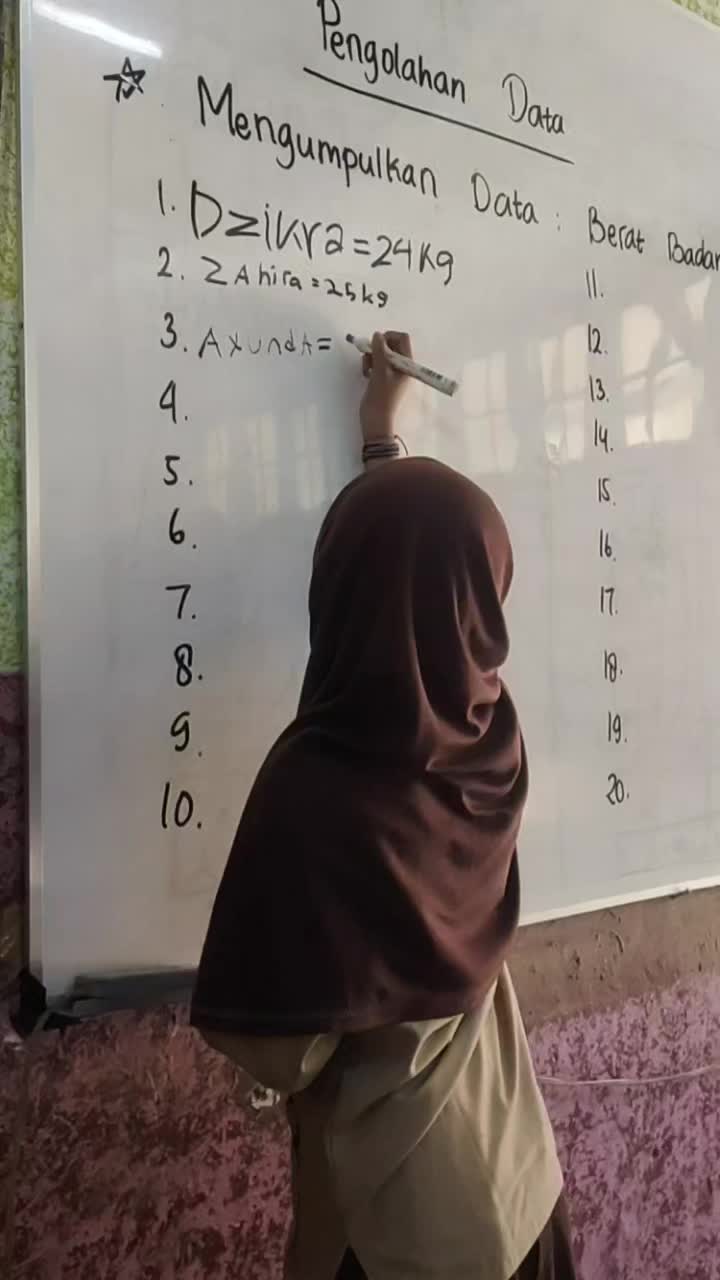 Pengolahan Data
Mengumpulkan Data : Berat Badan
1. Dzikra = 24 kg
2. ZAhira = 25 kg
3. AyundA =
4.
5.
6.
7.
8.
9.
10.
11.
12.
13.
14.
15.
16.
17.
18.
19.
20.